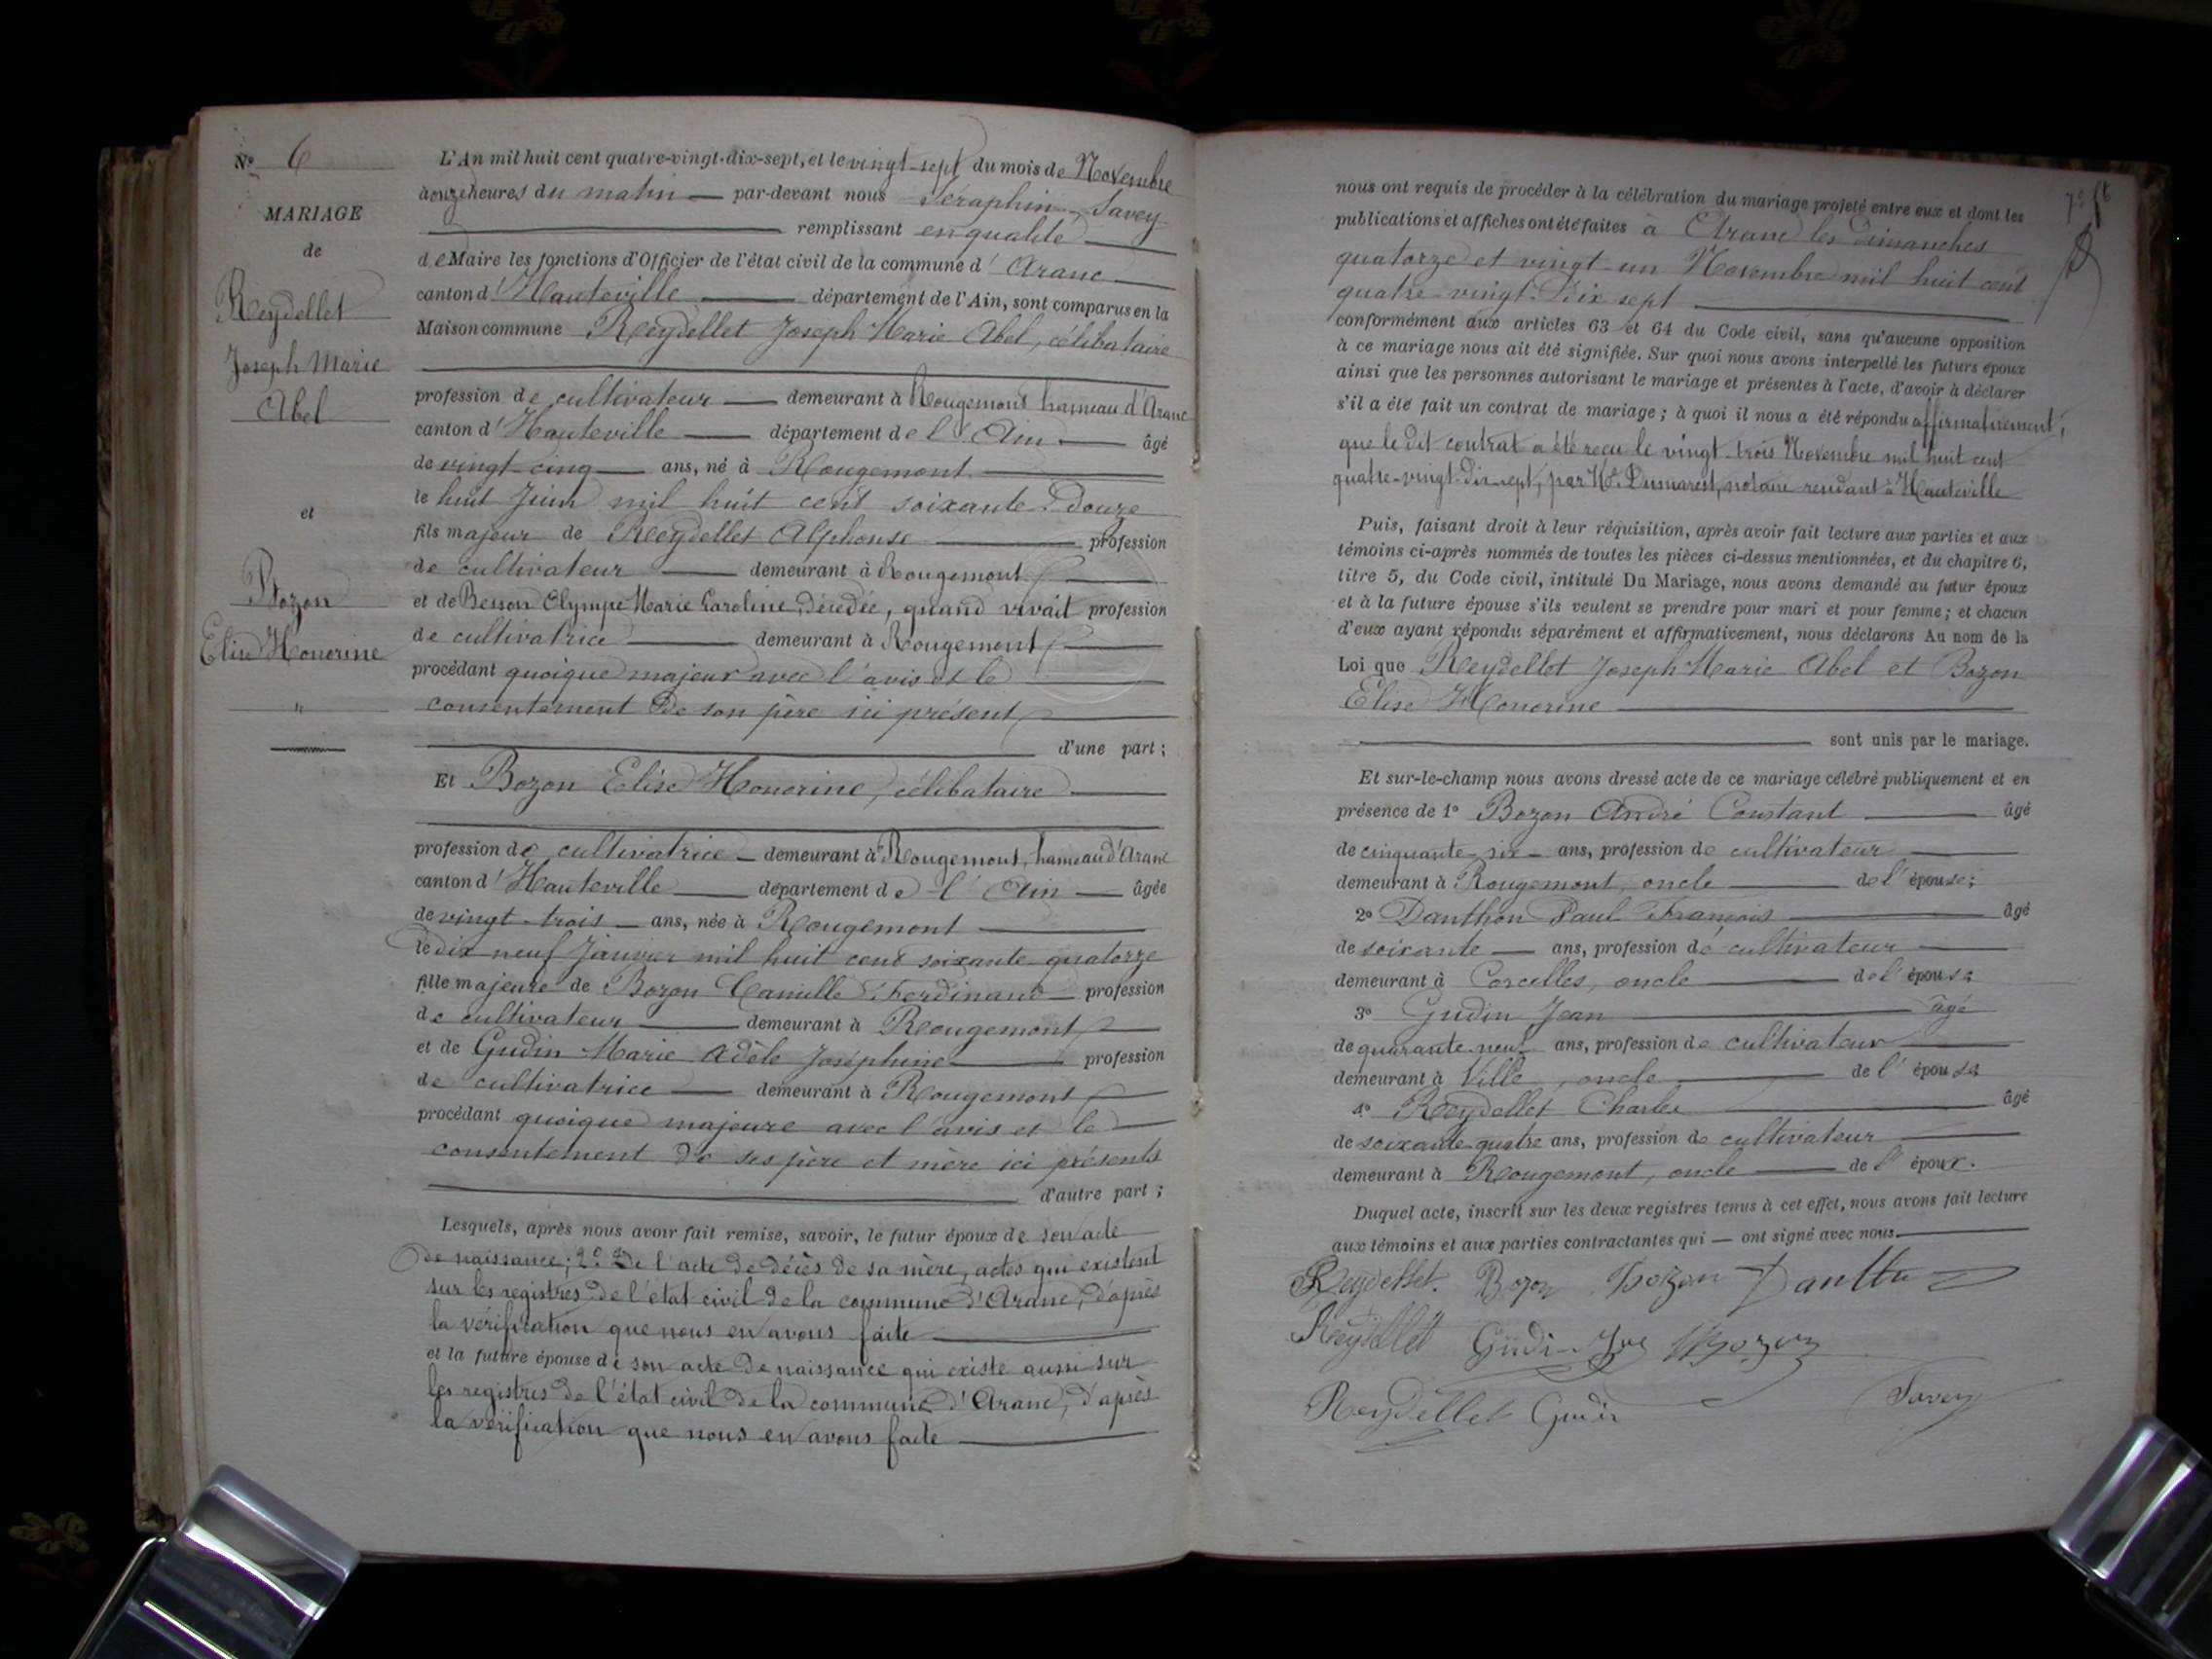 N° 6
MARIAGE
de
Reydellet
Joseph Marie
Abel
et
Bozon
Elise Honorine
"
L'An mil huit cent quatre-vingt-dix-sept, et le vingt-sept du mois de Novembre
à onze heures du matin — par-devant nous Séraphin Savey
remplissant en qualité
de Maire les fonctions d'Officier de l'état civil de la commune d'Aranc
canton d'Hauteville — département de l'Ain, sont comparus en la
Maison commune Reydellet Joseph Marie Abel, célibataire
profession de cultivateur — demeurant à Rougemont hameau d'Aranc
canton d'Hauteville — département de l'Ain — âgé
de vingt-cinq — ans, né à Rougemont
le huit Juin mil huit cent soixante-douze
fils majeur de Reydellet Alphonse — profession
de cultivateur — demeurant à Rougemont
et de Besson Olympe Marie Caroline, décédée, quand vivait profession
de cultivatrice — demeurant à Rougemont
procédant quoique majeur avec l'avis et le
consentement de son père ici présent
d'une part ;
Et Bozon Elise Honorine, célibataire
profession de cultivatrice — demeurant à Rougemont, hameau d'Aranc
canton d'Hauteville — département de l'Ain — âgée
de vingt-trois — ans, née à Rougemont
le dix-neuf Janvier mil huit cent soixante-quatorze
fille majeure de Bozon Camille Ferdinand — profession
de cultivateur — demeurant à Rougemont
et de Gudin Marie Adèle Joséphine — profession
de cultivatrice — demeurant à Rougemont
procédant quoique majeure avec l'avis et le
consentement de ses père et mère ici présents
d'autre part ;
Lesquels, après nous avoir fait remise, savoir, le futur époux de son acte
de naissance ; 2° de l'acte de décès de sa mère, actes qui existent
sur les registres de l'état civil de la commune d'Aranc, d'après
la vérification que nous en avons faite
et la future épouse de son acte de naissance qui existe aussi sur
les registres de l'état civil de la commune d'Aranc, d'après
la vérification que nous en avons faite
nous ont requis de procéder à la célébration du mariage projeté entre eux et dont les
publications et affiches ont été faites à Aranc les dimanches
quatorze et vingt-un Novembre mil huit cent
quatre-vingt-dix sept
conformément aux articles 63 et 64 du Code civil, sans qu'aucune opposition
à ce mariage nous ait été signifiée. Sur quoi nous avons interpellé les futurs époux
ainsi que les personnes autorisant le mariage et présentes à l'acte, d'avoir à déclarer
s'il a été fait un contrat de mariage ; à quoi il nous a été répondu affirmativement,
que le dit contrat a été reçu le vingt-trois Novembre mil huit cent
quatre-vingt-dix-sept, par Me Dumarest, notaire résidant à Hauteville
Puis, faisant droit à leur réquisition, après avoir fait lecture aux parties et aux
témoins ci-après nommés de toutes les pièces ci-dessus mentionnées, et du chapitre 6,
titre 5, du Code civil, intitulé Du Mariage, nous avons demandé au futur époux
et à la future épouse s'ils veulent se prendre pour mari et pour femme ; et chacun
d'eux ayant répondu séparément et affirmativement, nous déclarons Au nom de la
Loi que Reydellet Joseph Marie Abel et Bozon
Elise Honorine
sont unis par le mariage.
Et sur-le-champ nous avons dressé acte de ce mariage célébré publiquement et en
présence de 1° Bozon André Constant — âgé
de cinquante-six — ans, profession de cultivateur
demeurant à Rougemont, oncle — de l'épouse ;
2° Danthon Paul François — âgé
de soixante — ans, profession de cultivateur
demeurant à Corcelles, oncle — de l'épouse
3° Gudin Jean — âgé
de quarante-neuf ans, profession de cultivateur
demeurant à Ville, oncle — de l'épouse
4° Reydellet Charles — âgé
de soixante-quatre ans, profession de cultivateur
demeurant à Rougemont, oncle — de l'époux.
Duquel acte, inscrit sur les deux registres tenus à cet effet, nous avons fait lecture
aux témoins et aux parties contractantes qui — ont signé avec nous.
Reydellet. Bozon Bozon
Reydellet Bozon
Reydellet Gudin Savey